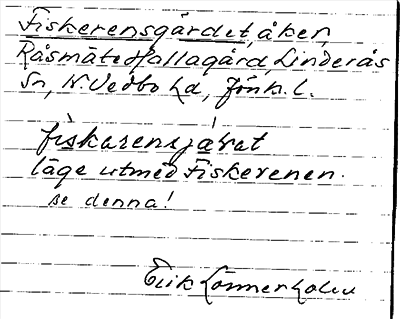 Fiskerensgärdet, åker,
Råsmåted Hallagård, Linderås
Sn, N. Vedbo hd, Jönk. l.
fìskarensjæ̀rat
läge utmed Fiskerenen.
se denna!
Erik